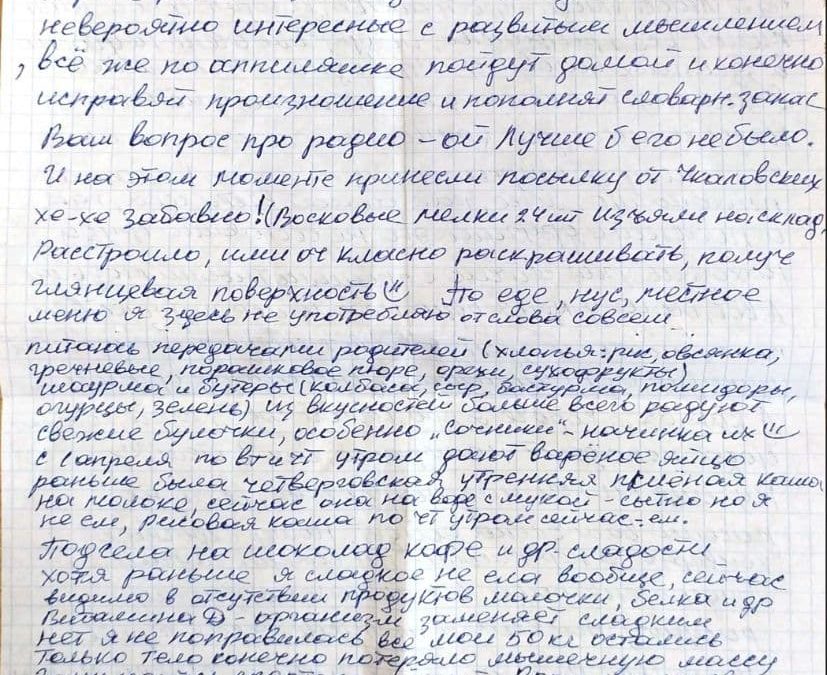 невероятно интересные с развитым мышлением
, всё же по аппиляшке пойдут домой и конечно
исправят произношение и пополнят словарн. запас
Вам вопрос про радио – ой лучше б его не было.
И на этом моменте принесли посылку от Чкаловских
хе-хе забавно! (Восковые мелки 24 шт изъяли на склад,
Расстроило, ими оч класно раскрашивать, получ
глянцевая поверхность По еде, нус, местное
меню я здесь не употребляю от слова совсем
питаюсь передачами родителей (хлопья: рис, овсянка,
гречневые, порашковое пюре, орехи, сухофрукты)
шаурма и бутеры (колбаса, сыр, бастурма, помидоры,
огурцы, зелень) из вкусностей больше всего радуют
свежие булочки, особенно „сочники" – начинка их
с 1 апреля по вт и чт утром дают варёное яйцо
раньше была четверговская утренняя пшёная каша
на молоке, сейчас она на воде с мукой – сытно но я
не ем, рисовая каша по чт утром сейчас – ем.
Подсела на шоколад кофе и др. сладости
хотя раньше я сладкое не ела вообще, сейчас
видимо в отсутствии продуктов молочки, белка и др
Витамина Д – организм заменяет сладким
нет я не поправилась все мои 50 кг остались
только тело конечно потеряло мышечную массу